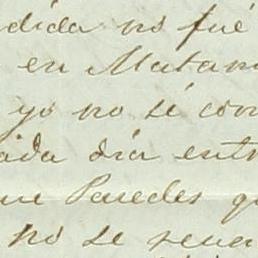 dida no fué
en Matam
yo no sé com
ada dia entr
ue Paredes q
no se